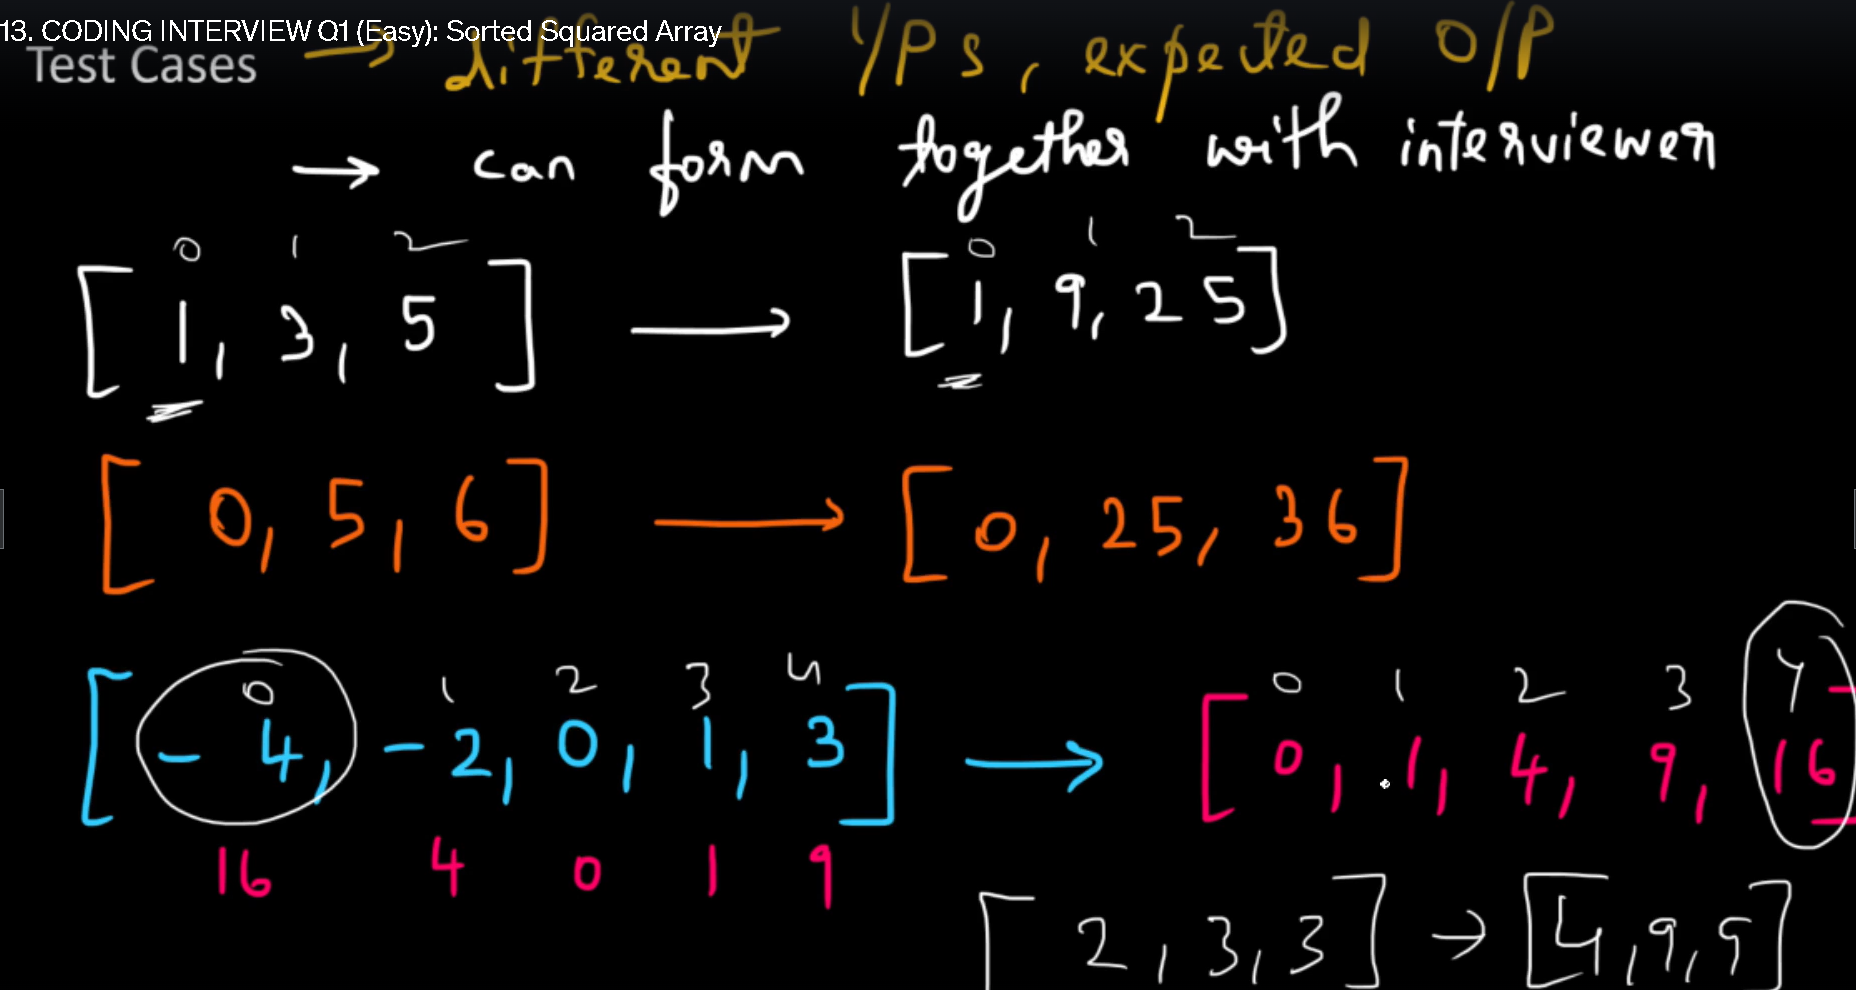 13. CODING INTERVIEW Q1 (Easy): Sorted Squared Array
Test Cases → different I/Ps, expected O/P
→ can form together with interviewer
0 1 2 0 1 2
[1, 3, 5] → [1, 9, 25]
[0, 5, 6] → [0, 25, 36]
0 1 2 3 4 0 1 2 3 4
[-4, -2, 0, 1, 3] → [0, 1, 4, 9, 16]
16 4 0 1 9
[2, 3, 3] → [4, 9, 9]